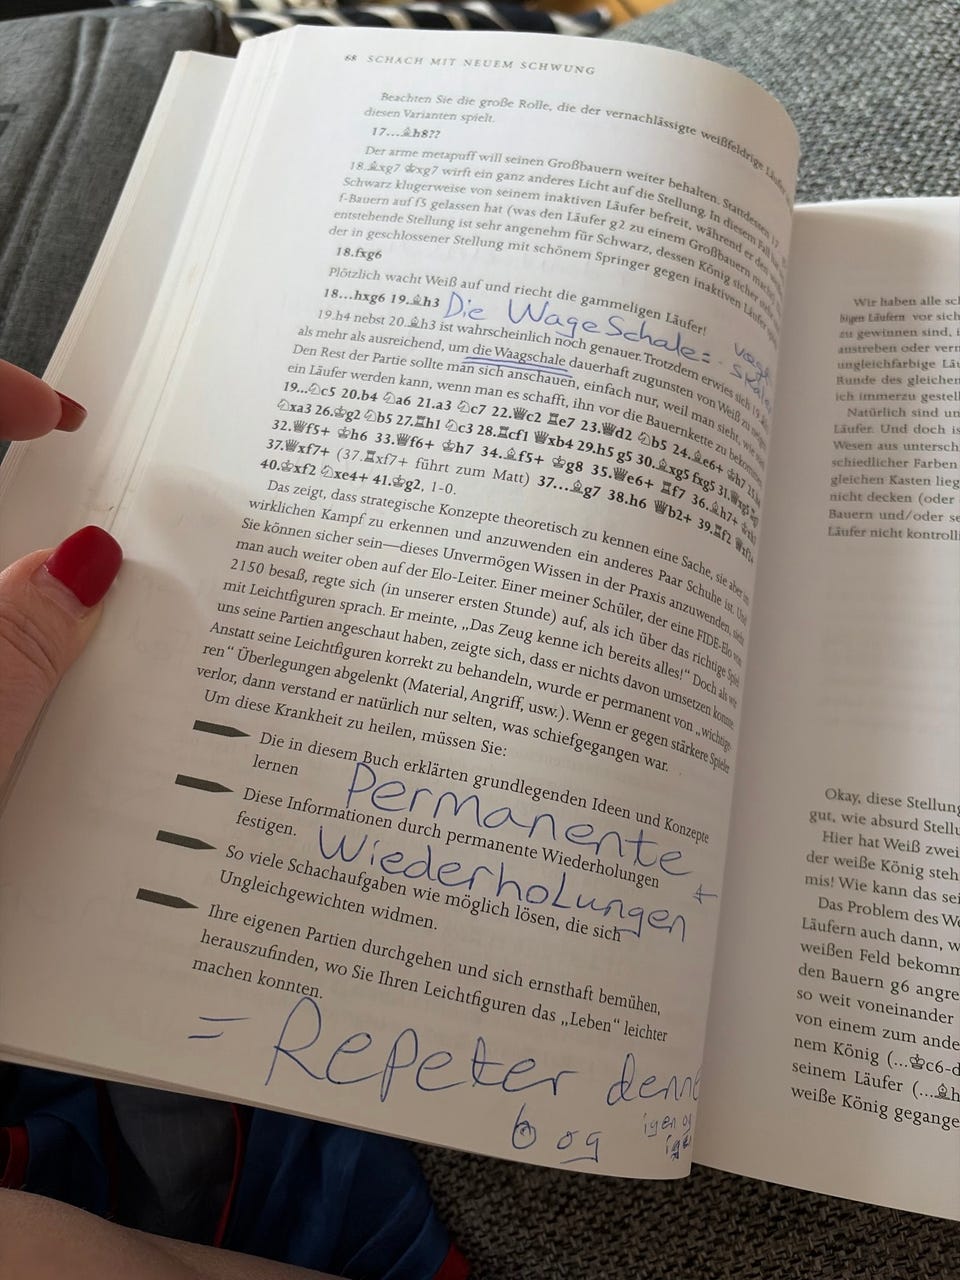 68 SCHACH MIT NEUEM SCHWUNG
Beachten Sie die große Rolle, die der vernachlässigte weißfeldrige Läufer
diesen Varianten spielt.
17...♗h8??
Der arme metapuff will seinen Großbauern weiter behalten. Stattdessen 17
18.♗xg7 ♔xg7 wirft ein ganz anderes Licht auf die Stellung. In diesem Fall
Schwarz klugerweise von seinem inaktiven Läufer befreit, während er den
f-Bauern auf f5 gelassen hat (was den Läufer g2 zu einem Großbauern macht)
entstehende Stellung ist sehr angenehm für Schwarz, dessen König sicher
der in geschlossener Stellung mit schönem Springer gegen inaktiven Läufer
18.fxg6
Plötzlich wacht Weiß auf und riecht die gammeligen Läufer!
18...hxg6 19.♗h3
Die WageSchale =
19.h4 nebst 20.♗h3 ist wahrscheinlich noch genauer. Trotzdem erwies sich
als mehr als ausreichend, um die Waagschale dauerhaft zugunsten von Weiß zu
Den Rest der Partie sollte man sich anschauen, einfach nur, weil man sieht, wie
ein Läufer werden kann, wenn man es schafft, ihn vor die Bauernkette zu bekommen
19...♘c5 20.b4 ♘a6 21.a3 ♘c7 22.♕c2 ♖e7 23.♕d2 ♘b5 24.♗e6+ ♔h7
♘xa3 26.♔g2 ♘b5 27.♖h1 ♘c3 28.♖cf1 ♕xb4 29.h5 g5 30.♗xg5 fxg5 31.♕xg5
32.♕f5+ ♔h6 33.♕f6+ ♔h7 34.♗f5+ ♔g8 35.♕e6+ ♖f7 36.♗h7+
37.♕xf7+ (37.♖xf7+ führt zum Matt) 37...♗g7 38.h6 ♕b2+ 39.♖f2
40.♔xf2 ♘xe4+ 41.♔g2, 1-0.
Das zeigt, dass strategische Konzepte theoretisch zu kennen eine Sache, sie aber im
wirklichen Kampf zu erkennen und anzuwenden ein anderes Paar Schuhe ist. Und
Sie können sicher sein—dieses Unvermögen Wissen in der Praxis anzuwenden, sieht
man auch weiter oben auf der Elo-Leiter. Einer meiner Schüler, der eine FIDE-Elo von
2150 besaß, regte sich (in unserer ersten Stunde) auf, als ich über das richtige Spiel
mit Leichtfiguren sprach. Er meinte, „Das Zeug kenne ich bereits alles!“ Doch als wir
uns seine Partien angeschaut haben, zeigte sich, dass er nichts davon umsetzen konnte.
Anstatt seine Leichtfiguren korrekt zu behandeln, wurde er permanent von „wichtige-
ren“ Überlegungen abgelenkt (Material, Angriff, usw.). Wenn er gegen stärkere Spieler
verlor, dann verstand er natürlich nur selten, was schiefgegangen war.
Um diese Krankheit zu heilen, müssen Sie:
Die in diesem Buch erklärten grundlegenden Ideen und Konzepte
lernen
Permanente
Diese Informationen durch permanente Wiederholungen
festigen.
Wiederholungen
So viele Schachaufgaben wie möglich lösen, die sich
Ungleichgewichten widmen.
Ihre eigenen Partien durchgehen und sich ernsthaft bemühen,
herauszufinden, wo Sie Ihren Leichtfiguren das „Leben“ leichter
machen konnten.
= Repeter denne
bog
igen og
Wir haben alle
bigen Läufern vor sich
zu gewinnen sind,
anstreben oder
ungleichfarbige
Runde des gleichen
ich immerzu
Natürlich sind
Läufer. Und doch
Wesen aus
schiedlicher Farben
gleichen Kasten
nicht decken (oder
Bauern und/oder
Läufer nicht
Okay, diese Stellung
gut, wie absurd
Hier hat Weiß zwei
der weiße König
mis! Wie kann das
Das Problem des
Läufern auch dann,
weißen Feld
den Bauern g6
so weit voneinander
von einem zum
nem König (...♔c6-
seinem Läufer (...♗
weiße König